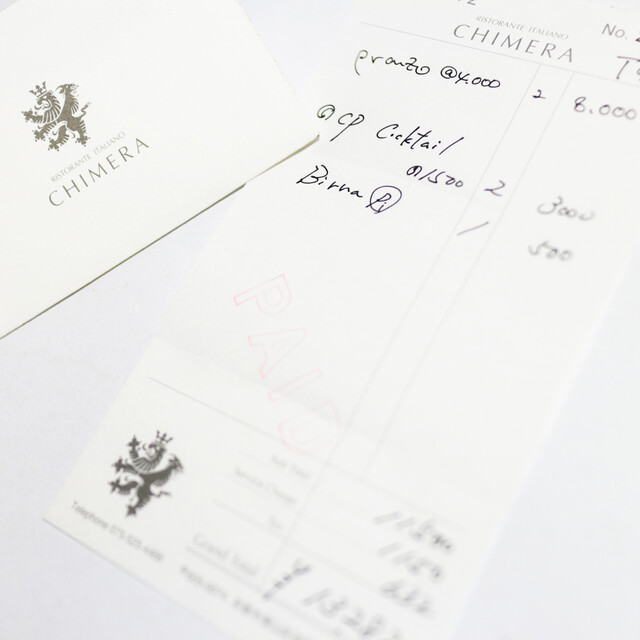 RISTORANTE ITALIANO
CHIMERA
RISTORANTE ITALIANO
CHIMERA
No.
pranzo @4.000 2 8.000
CP Cicktail
@1500 2 3000
Birra Pi 1 500
PAID
Sub Total
Service Charge
Tax
Grand Total
Telephone